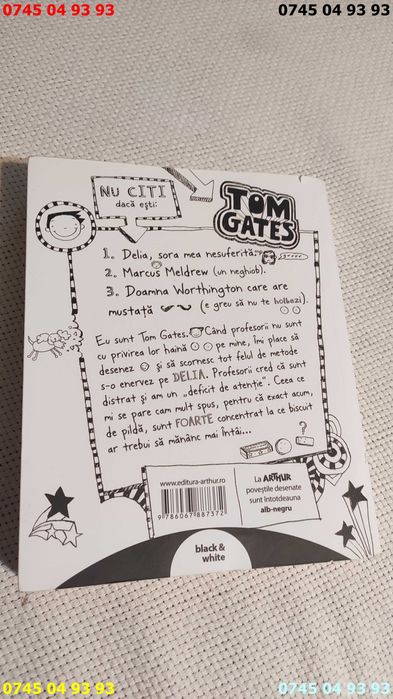 0745 04 93 93
0745 04 93 93
NU CITI
dacă ești:
TOM
GATES
1. Delia, sora mea nesuferită.
2. Marcus Meldrew (un neghiob).
3. Doamna Worthington care are
mustață (e greu să nu te holbezi).
Eu sunt Tom Gates. Când profesorii nu sunt
cu privirea lor haină pe mine, îmi place să
desenez și să scornesc tot felul de metode
s-o enervez pe DELIA. Profesorii cred că sunt
distrat și am un „deficit de atenție". Ceea ce
mi se pare cam mult spus, pentru că exact acum,
de pildă, sunt FOARTE concentrat la ce biscuit
ar trebui să mănânc mai întâi...
?
www.editura-arthur.ro
9 786067 887372
La ARTHUR
poveștile desenate
sunt întotdeauna
alb-negru
black &
white
0745 04 93 93
0745 04 93 93